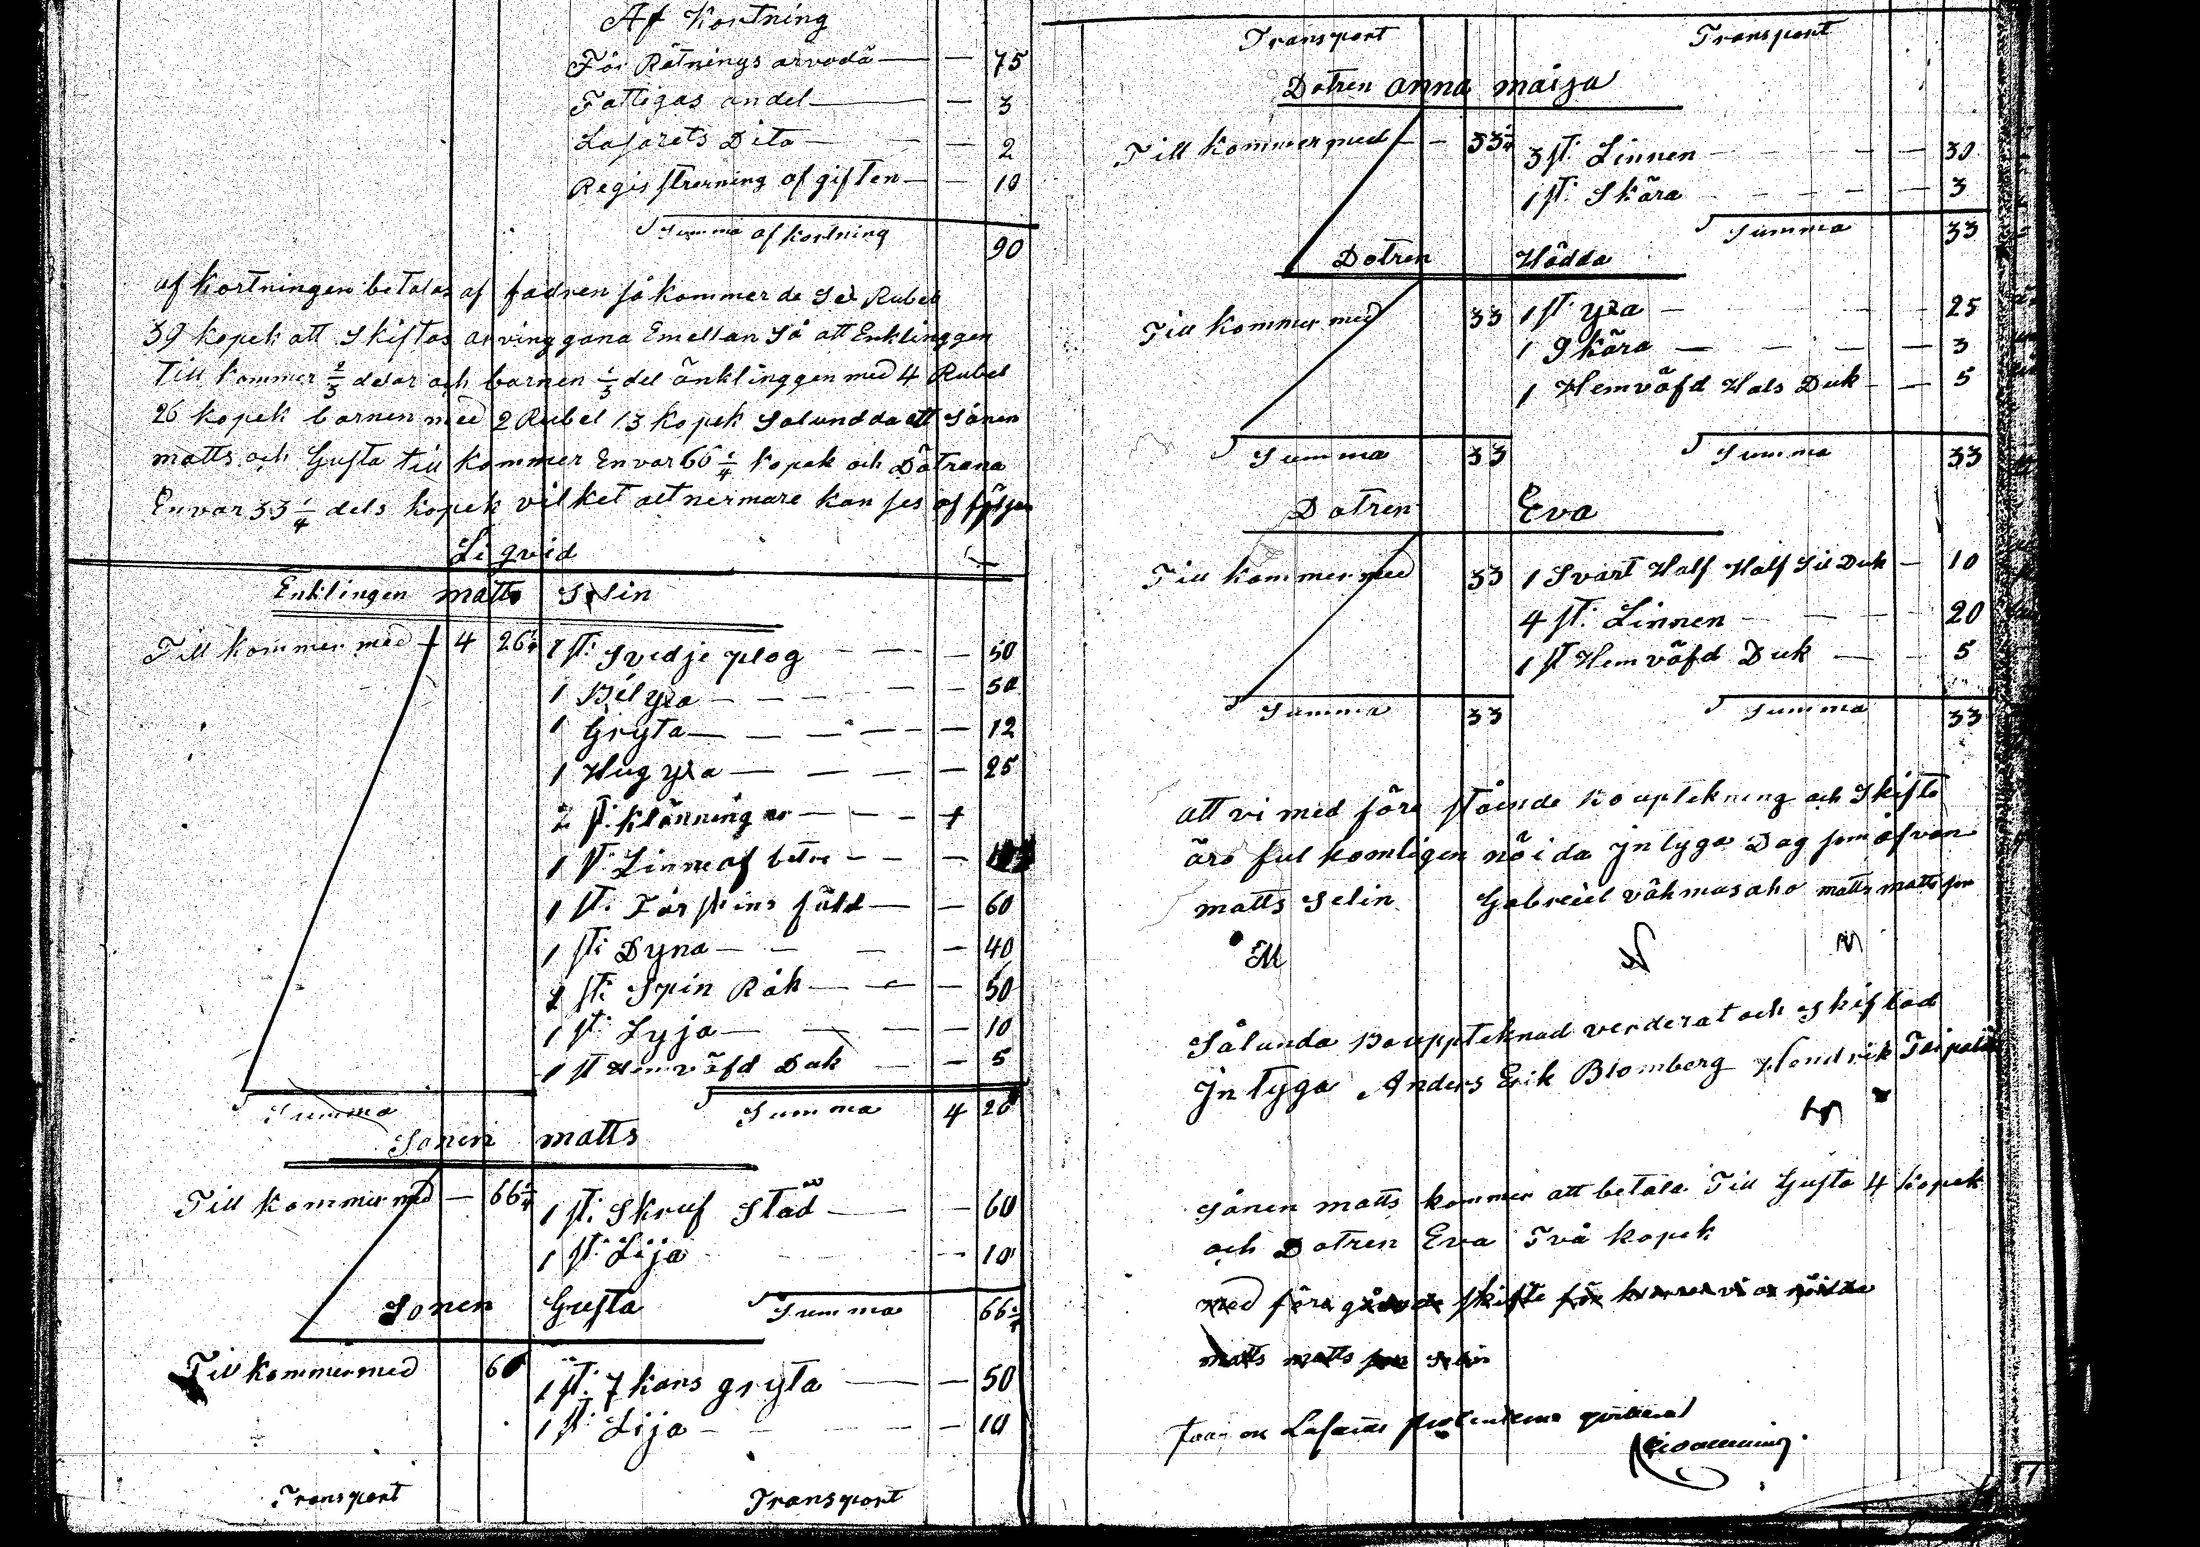 Af Kortning
För Rätnings arvodä — — 75
Fattigas andel — — 3
Lasarets Dito — — 2
Regisstrerning afgiften — — 10
Summa afkortning 90
afkortningen betalas af fadren så kommer de Sex Rubel
39 kopek att Skiftas arvinggana Emellan Så att Enklinggen
Till kommer 2/3 delar och barnen 1/3 del änklinggen med 4 Rubel
26 kopek barnen med 2 Rubel 13 kopek Salundda att Sånen
matts och Gusta till kommer En var 66 1/4 kopek och Dötrana
En var 33 1/4 dels kopek vilket alt nermare kan ses af följan
Liqvid
Enklingen matts Selin
Till kommer med 4 26 1/4 1 st: Svedje plog — — 50
1 Bil yxa — — 50
1 Gryta — — 12
1 Hug yxa — — 25
2 st: Klänning er — — 1
1 st: Linne af bätre — —
1 st: Fårskins fäld — — 60
1 st: Dyna — — 40
1 st: Spin Råk — — 50
1 st: Lyja — — 10
1 st Hemväfd Duk — — 5
Summa Summa 4 26
Sonen matts
Till kommer med — 66 1/4 1 st: Skruf Städ — — 60
1 st: Lija — — 10
Sonen Gusta Summa 66 1/4
Till kommer med 66 1 st: 7 kans gryta — — 50
1 st: Lija — — 10
Transport Transport
Transport Transport
Dotren anna maija
Till kommer med — 33 1/4 3 st: Linnen — — 30
1 st: Skära — — 3
Summa 33
Dotren Hädda
Till kommer med 33 1 st: yxa — — 25
1 Skära — — 3
1 Hemväfd Hals Duk — — 5
Summa 33 Summa 33
Dotren Eva
Till kommer med 33 1 Svart Half Half Sil Duk — 10
4 st: Linnen — — 20
1 st Hemväfd Duk — — 5
Summa 33 Summa 33
att vi med före stående Bouptekning och Skifte
äro ful komligen nöida Jntyga Dag som ofvan
matts Selin Gabreiel väkmasaho matts matts son
M
Sålunda Bouppteknad verderat och Skiftad
Jntyga Anders Erik Blomberg Hendrik Taipale
Sånen matts kommer att betala Till Gusta 4 kopek
och Dotren Eva Två kopek
med före gående skifte för
matts matts son Selin